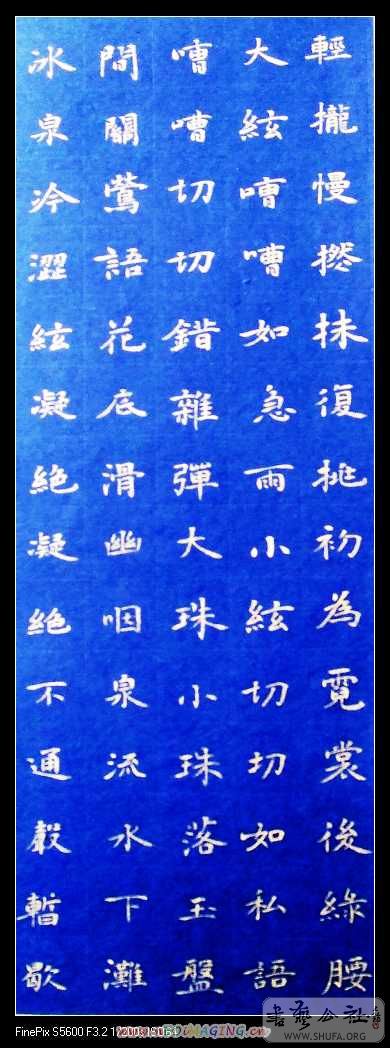 輕攏慢撚抹復挑初為霓裳後綠腰
大絃嘈嘈如急雨小絃切切如私語
嘈嘈切切錯雜彈大珠小珠落玉盤
間關鶯語花底滑幽咽泉流水下灘
冰泉冷澀絃凝絕凝絕不通聲暫歇
FinePix S5600 F3.2
書藝公社
WWW.SHUFA.ORG